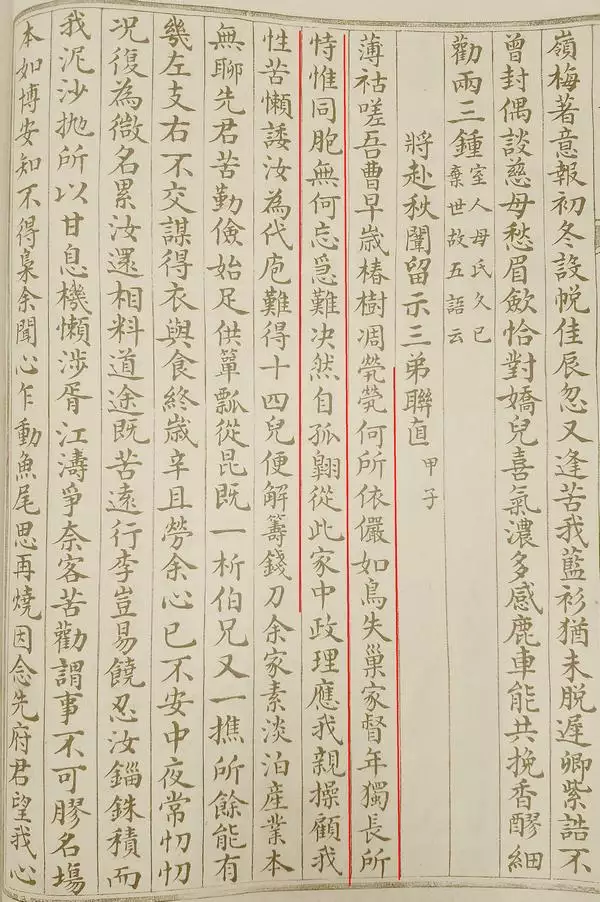 嶺梅著意報初冬設帨佳辰忽又逢苦我藍衫猶未脫遲卿紫誥不
曾封偶談慈母愁眉斂恰對嬌兒喜氣濃多感鹿車能共挽香醪細
勸兩三鍾室人母氏久已
棄世故五語云
將赴秋闈留示三弟聯直 甲子
薄祜嗟吾曹早歲椿樹凋煢煢何所依儼如鳥失巢家督年獨長所
恃惟同胞無何忘難决然自孤翺從此家中政理應我親操顧我
性苦懶諉汝為代庖難得十四兒便解籌錢刀余家素淡泊產業本
無聊先君苦勤儉始足供簞瓢從昆既一析伯兄又一撨所餘能有
幾左支右不交謀得衣與食終歲辛且勞余心已不安中夜常忉忉
况復為微名累汝還相料道途既苦遠行李豈易饒忍汝錙銖積而
我泥沙拋所以甘息機懶涉胥江濤爭奈客苦勸謂事不可膠名場
本如博安知不得梟余聞心乍動魚尾思再燒因念先府君望我心